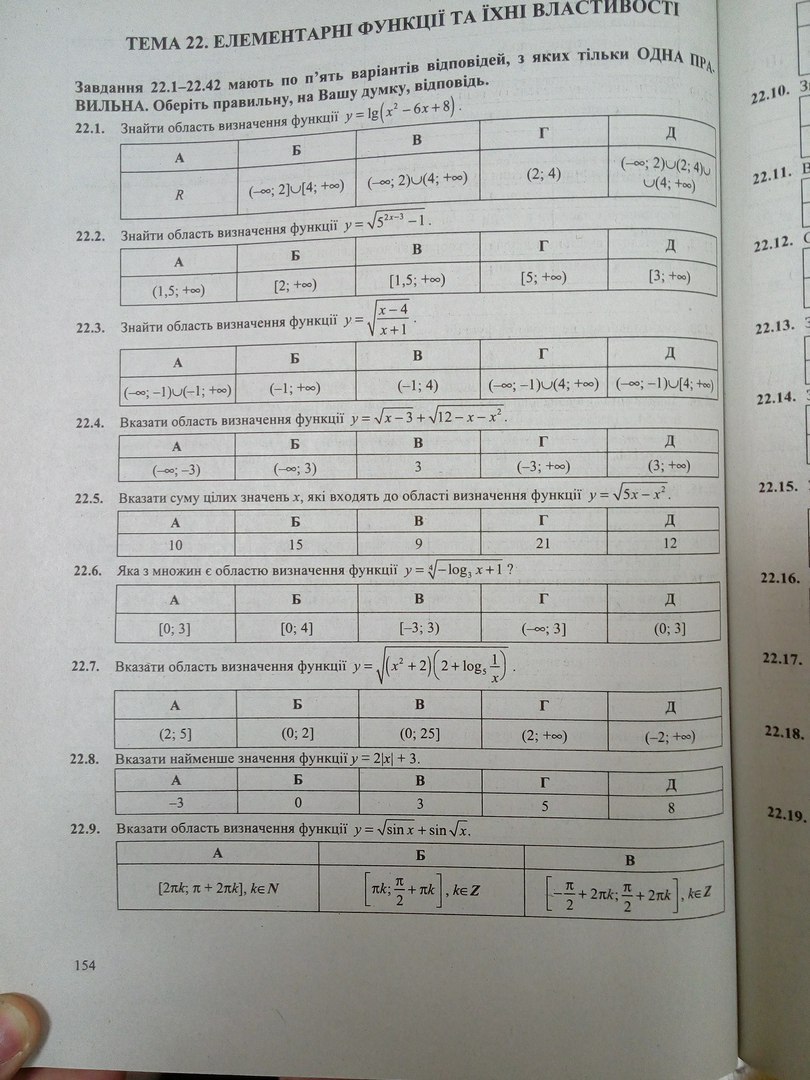 ТЕМА 22. ЕЛЕМЕНТАРНІ ФУНКЦІЇ ТА ЇХНІ ВЛАСТИВОСТІ
Завдання 22.1–22.42 мають по п'ять варіантів відповідей, з яких тільки ОДНА ПРА-
ВИЛЬНА. Оберіть правильну, на Вашу думку, відповідь.
22.1. Знайти область визначення функції y = lg(x² − 6x + 8).
А Б В Г Д
R (−∞; 2]∪[4; +∞) (−∞; 2)∪(4; +∞) (2; 4) (−∞; 2)∪(2; 4)∪
∪(4; +∞)
22.2. Знайти область визначення функції y = √(5²ˣ⁻³ − 1).
А Б В Г Д
(1,5; +∞) [2; +∞) [1,5; +∞) [5; +∞) [3; +∞)
22.3. Знайти область визначення функції y = √((x − 4)/(x + 1)).
А Б В Г Д
(−∞; −1)∪(−1; +∞) (−1; +∞) (−1; 4) (−∞; −1)∪(4; +∞) (−∞; −1)∪[4; +∞)
22.4. Вказати область визначення функції y = √(x − 3) + √(12 − x − x²).
А Б В Г Д
(−∞; −3) (−∞; 3) 3 (−3; +∞) (3; +∞)
22.5. Вказати суму цілих значень x, які входять до області визначення функції y = √(5x − x²).
А Б В Г Д
10 15 9 21 12
22.6. Яка з множин є областю визначення функції y = ⁴√(−log₃ x + 1) ?
А Б В Г Д
[0; 3] [0; 4] [−3; 3) (−∞; 3] (0; 3]
22.7. Вказати область визначення функції y = √((x² + 2)(2 + log₅ 1/x)).
А Б В Г Д
(2; 5] (0; 2] (0; 25] (2; +∞) (−2; +∞)
22.8. Вказати найменше значення функції y = 2|x| + 3.
А Б В Г Д
−3 0 3 5 8
22.9. Вказати область визначення функції y = √sin x + sin √x.
А Б В
[2πk; π + 2πk], k∈N [πk; π/2 + πk], k∈Z [−π/2 + 2πk; π/2 + 2πk], k∈Z
154
22.10. З
22.11. В
22.12.
22.13.
22.14.
22.15.
22.16.
22.17.
22.18.
22.19.